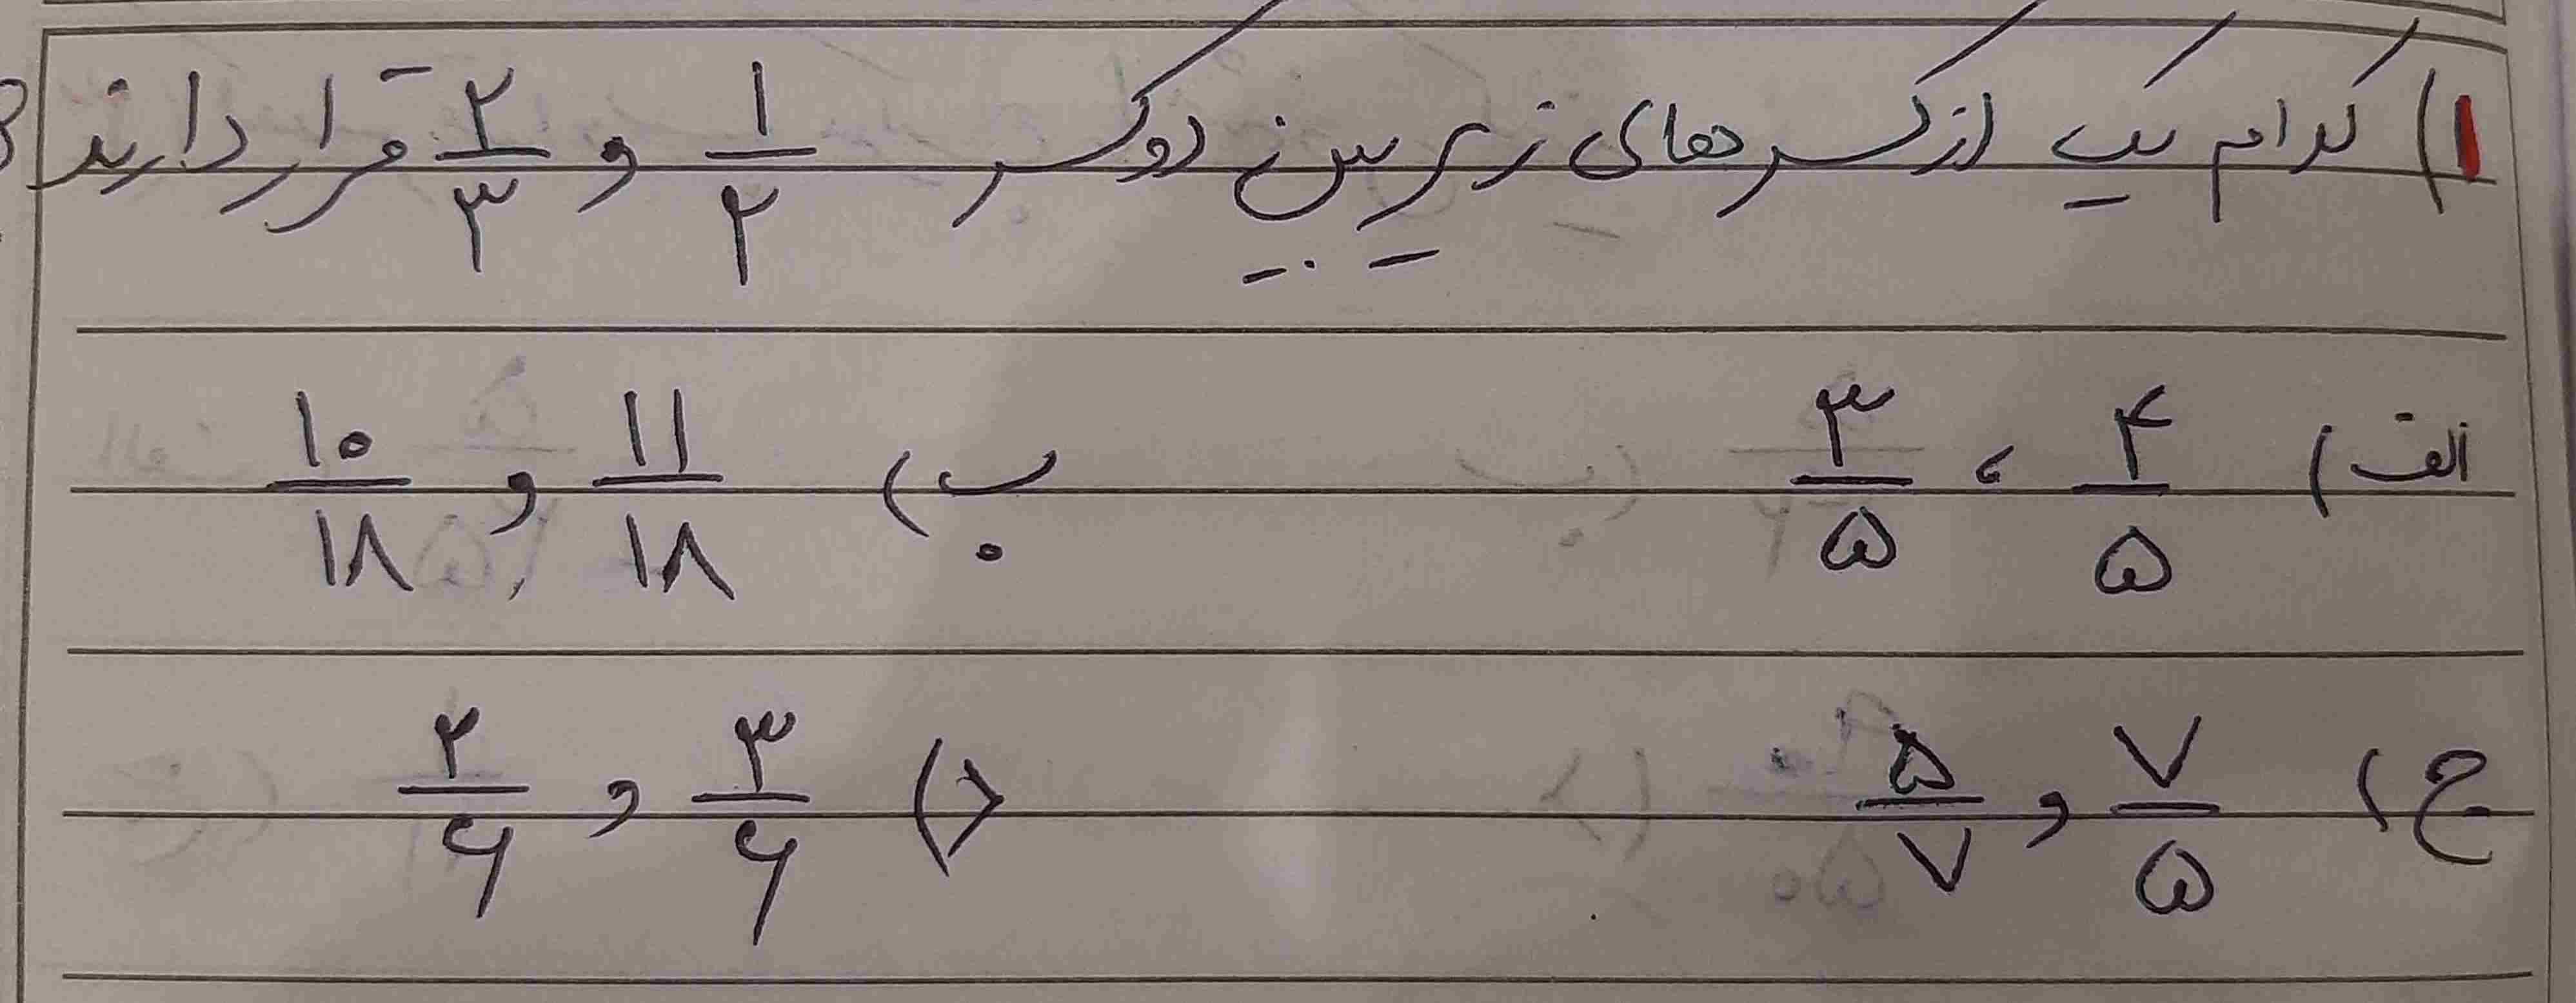 ۱) کدام یک از کسرهای زیر بین دو کسر ۱/۲ و ۲/۳ قرار دارند
الف) ۴/۵ ، ۳/۵ ب) ۱۱/۱۸ و ۱۰/۱۸
ج) ۷/۵ و ۵/۷ د) ۳/۶ و ۲/۶